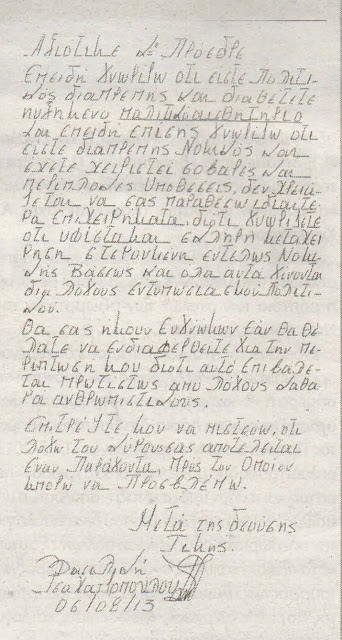 Αξιότιμε κε Πρόεδρε
Επειδή γνωρίζω ότι είστε πολιτι-
κός διαπρεπής και διαθέτετε
πυχημένο πολιτικόαισθητήριο
και επειδή επίσης γνωρίζω ότι
είστε διαπρεπής Νομικός και
έχετε χειριστεί σοβαρές και
περίπλοκες υποθέσεις, δεν χρειά-
ζεται να σας παραθέσω ιδιαίτε-
ρα επιχειρήματα, διότι γνωρίζετε
ότι υφίσταμαι σκληρή μεταχεί
ριση στερούμενη εντελώς Νομι-
κής Βάσεως και όλα αυτά γίνονται
δια λόγους εντυπωσιασμού πολιτι-
κού.
Θα σας ήμουν ευγνώμων εάν θα θέ-
λατε να ενδιαφερθείτε για την πε-
ρίπτωσή μου διότι αυτό επιβάλε-
ται πρωτίστως από λόγους καθα-
ρά ανθρωπιστικούς.
Επιτρέψτε μου να πιστεύω, ότι
λόγω του κύρους σας αποτελείται
έναν Παράγοντα, προς τον οποίον
μπορώ να προσβλέπω.
Μετά της δεούσης
Τιμής.
Βασιλική
Τσοχατζοπούλου
06/08/13